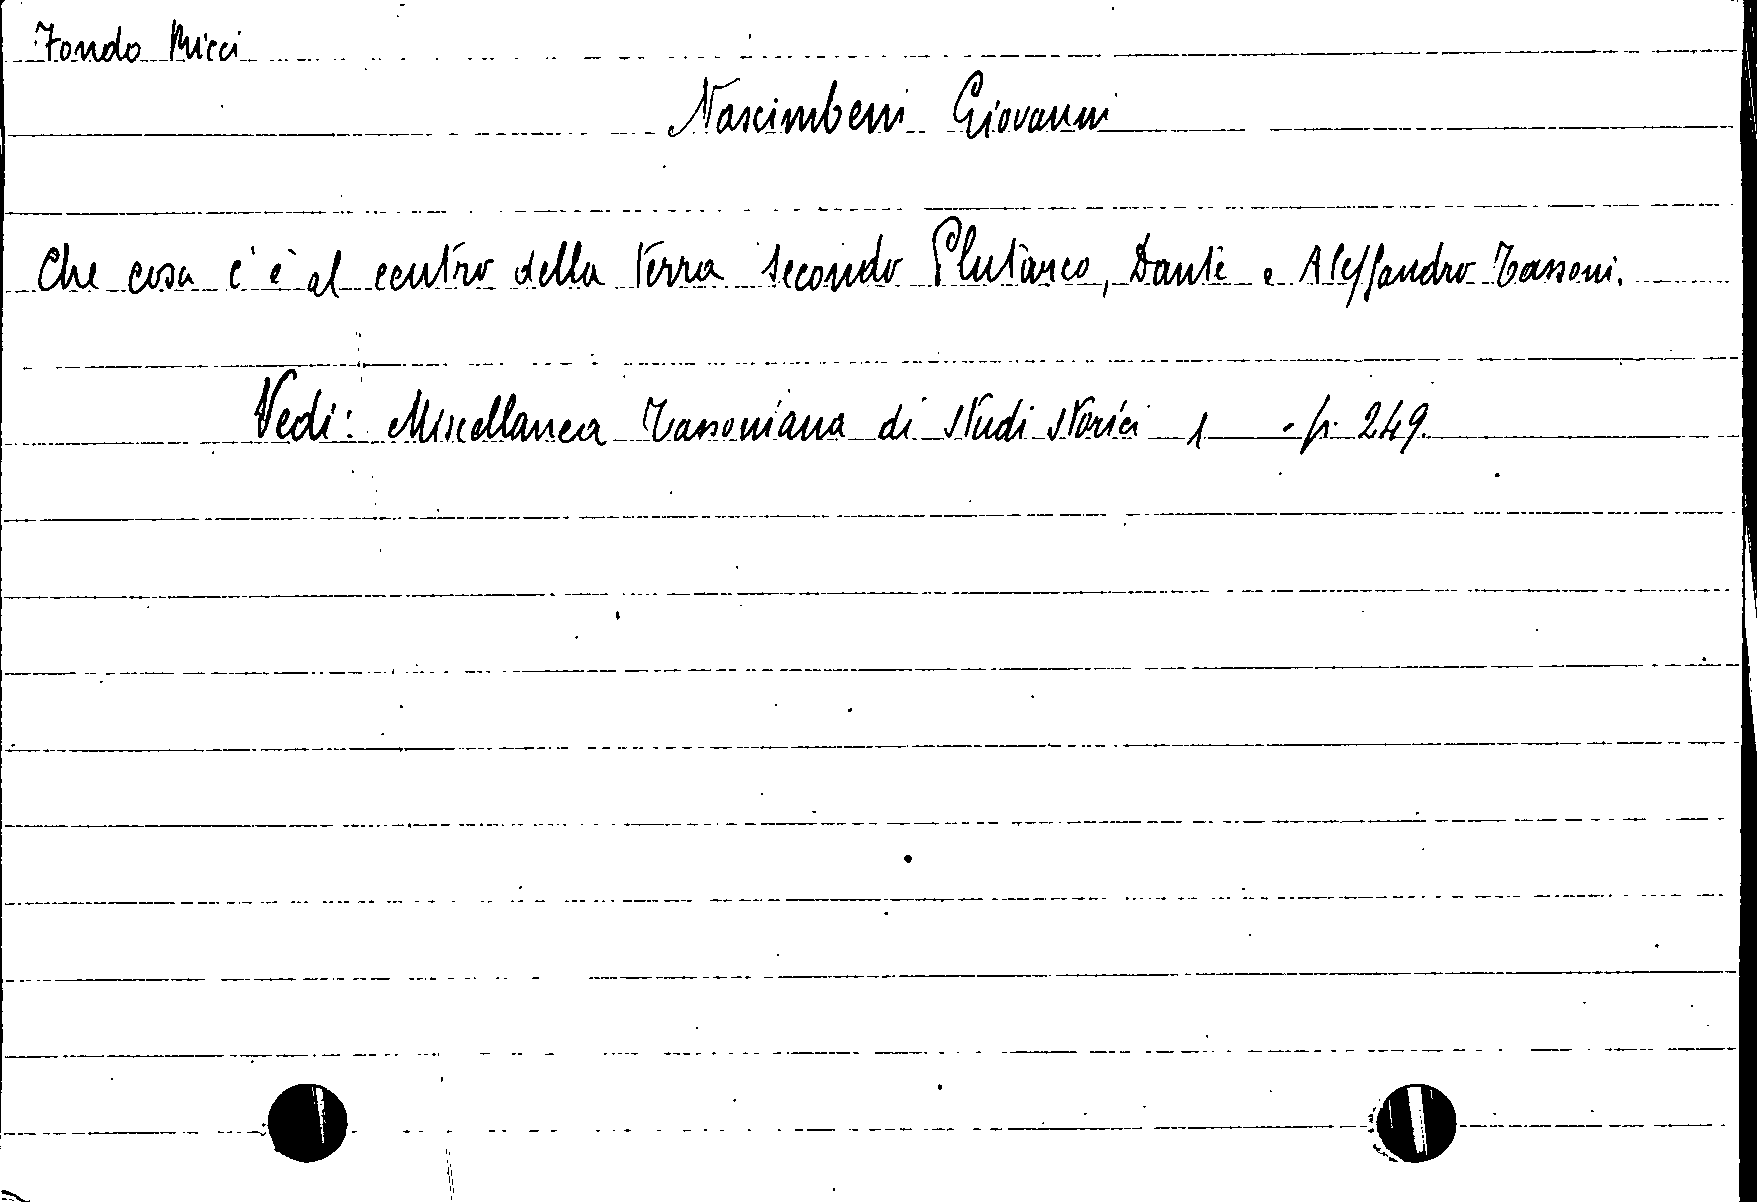 Fondo Ricci
Nascimbeni Giovanni
Che cosa c'è al centro della terra secondo Plutarco, Dante e Alessandro Tassoni.
Vedi: Miscellanea Tassoniana di studi storici 1 - p. 249.